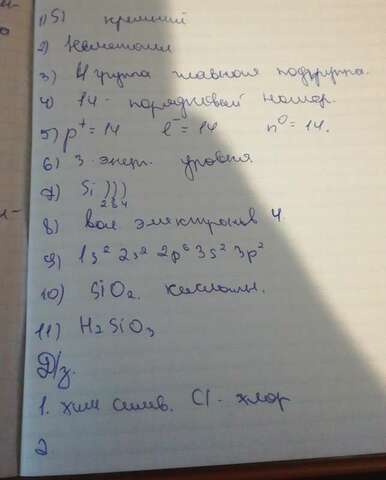 1) Si кремний
2) Неметалл
3) 4 группа главная подгруппа.
4) 14 - порядковый номер.
5) p⁺ = 14 e⁻ = 14 n⁰ = 14.
6) 3 энерг. уровня
7) Si ))) 2 8 4
8) вал. электронов 4
9) 1s² 2s² 2p⁶ 3s² 3p²
10) SiO₂ кислотн.
11) H₂SiO₃
Д/з.
1. хим симв. Cl - хлор
2